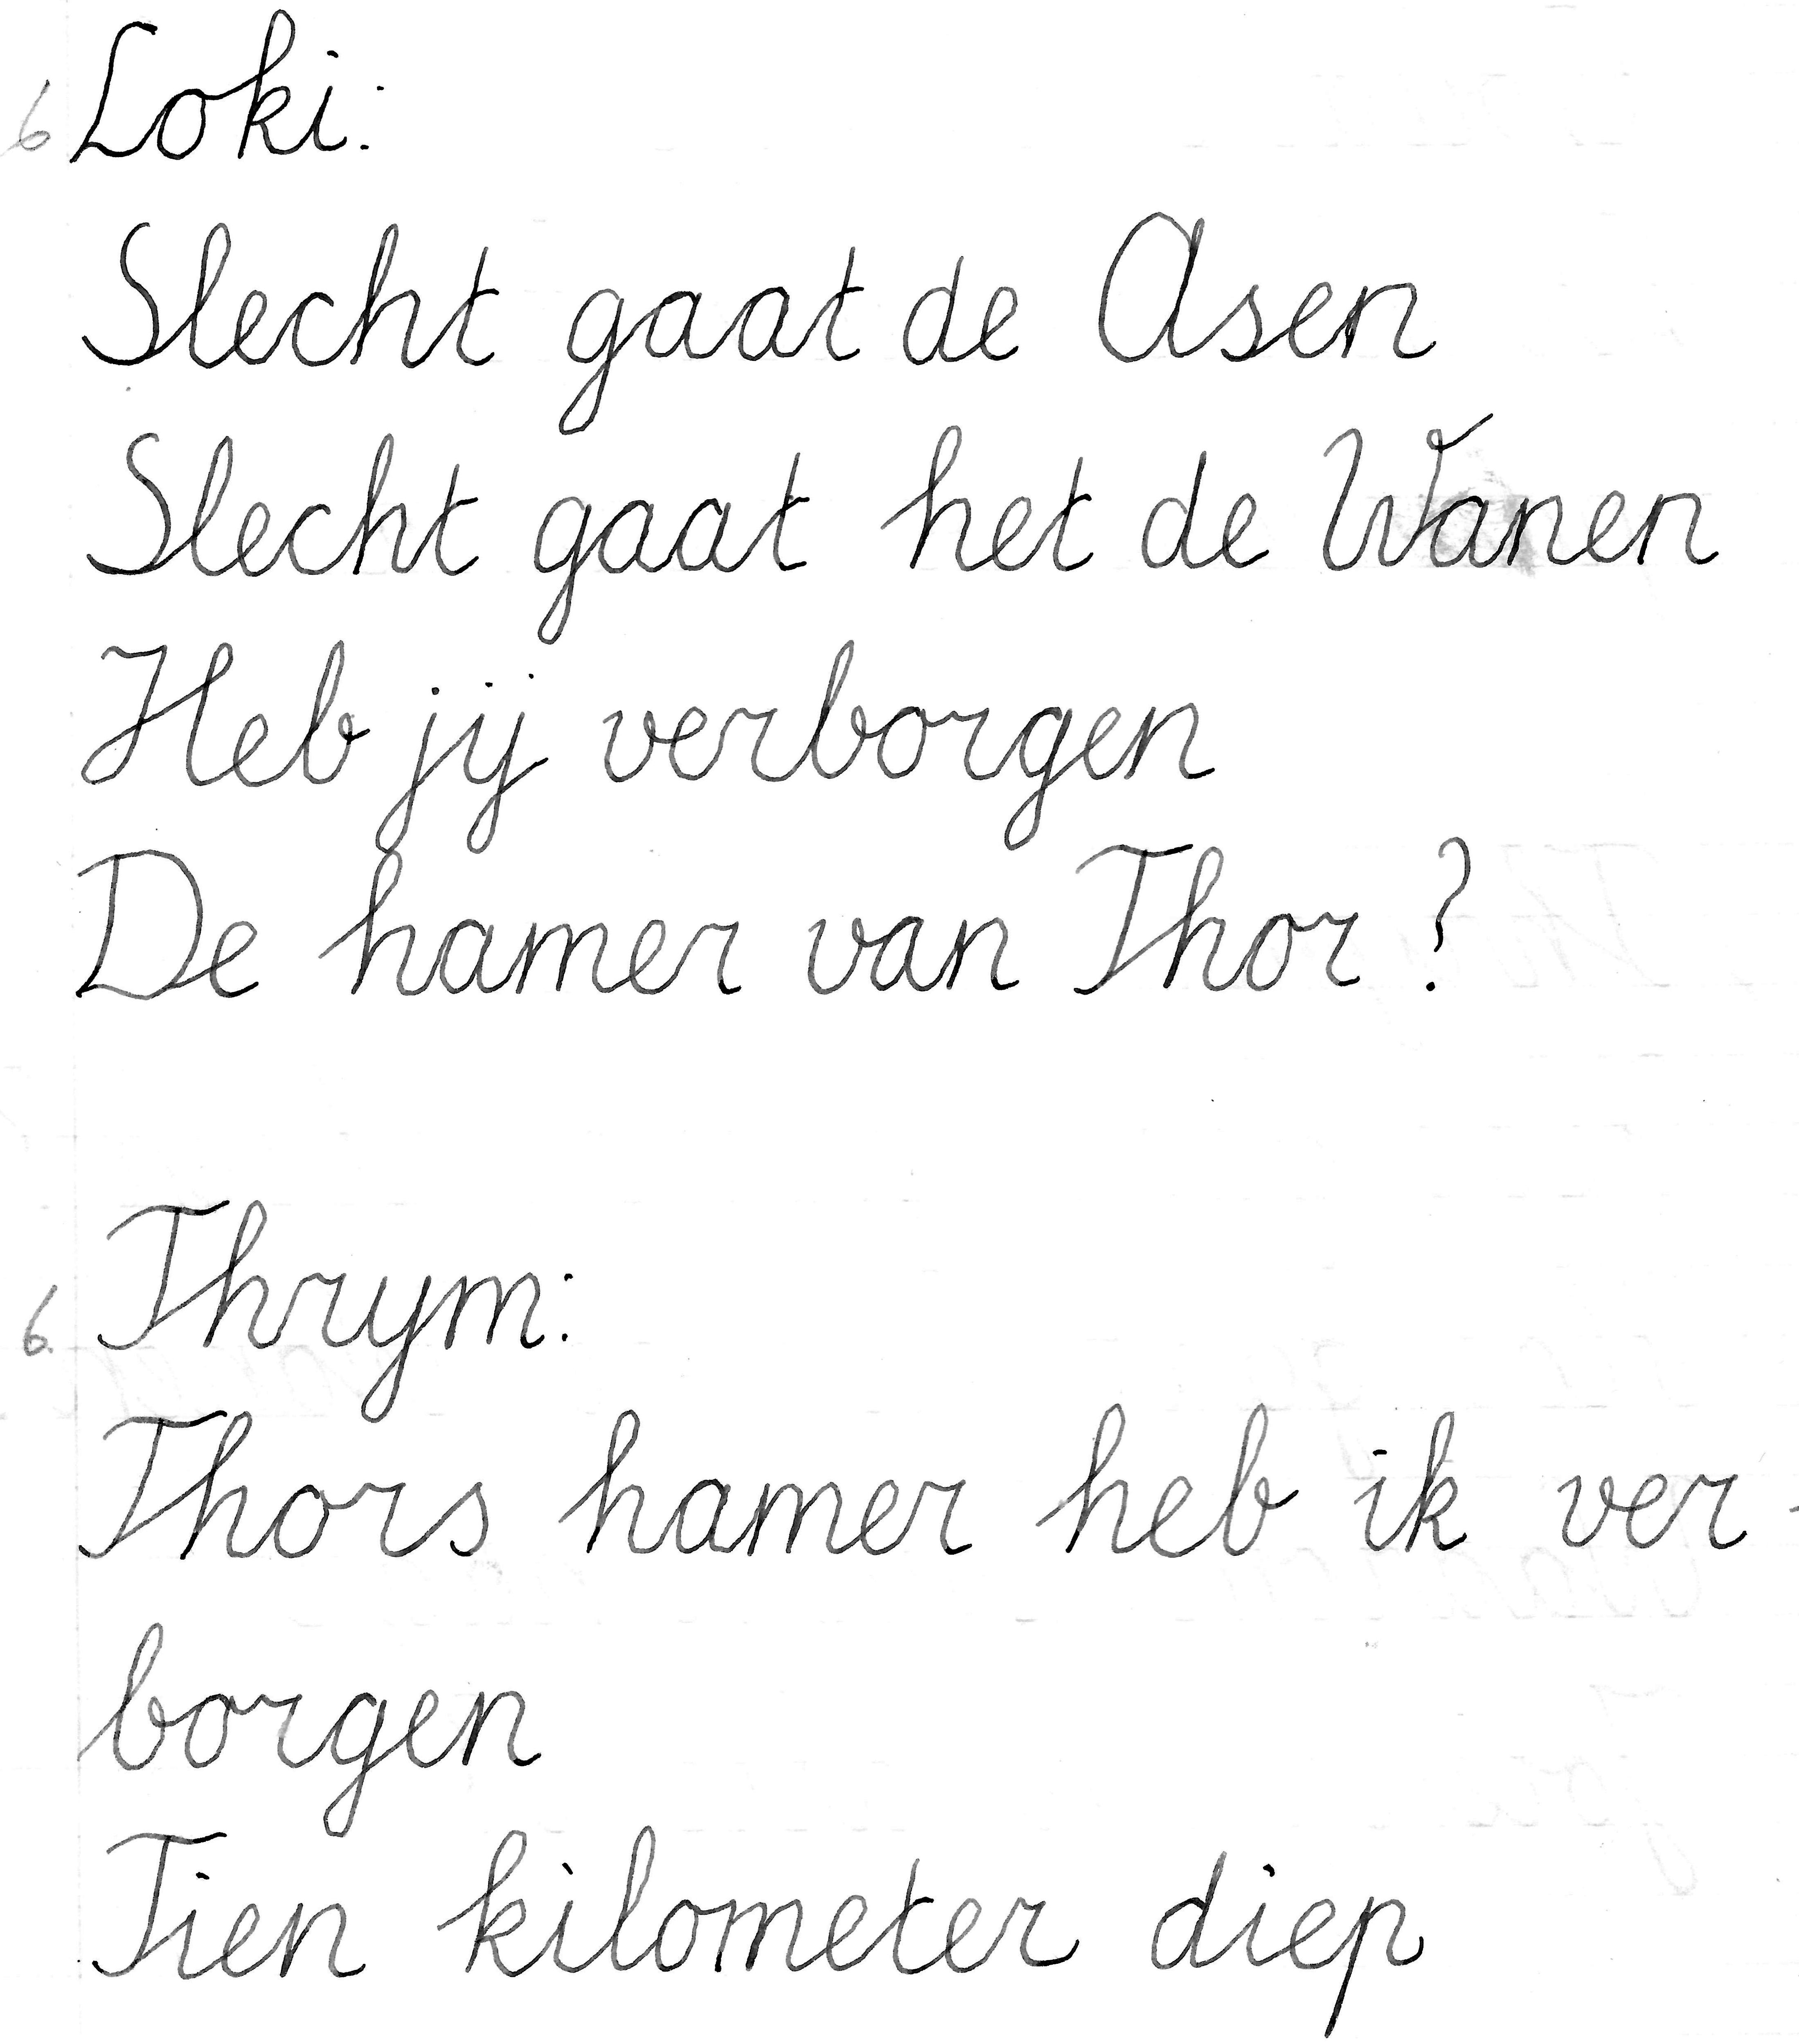 6 Loki:
Slecht gaat de Asen
Slecht gaat het de Wanen
Heb jij verborgen
De hamer van Thor?
6. Thrym:
Thors hamer heb ik ver-
borgen
Tien kilometer diep